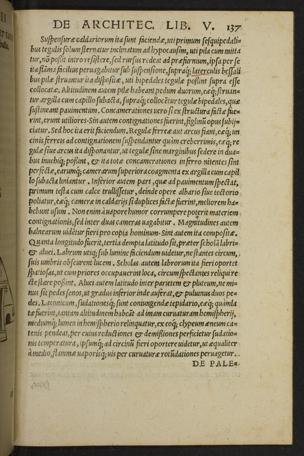 DE ARCHITEC. LIB. V. 137
Suspensuræ caldariorum ita sunt faciendæ, uti primum sesquipedali=
bus tegulis solum sternatur inclinatum ad hypocausim, uti pila cum mitta
tur, nō possit intro resistere, sed rursus redeat ad præfurnium, ipsa per se
ita flāma facilius peruagabitur sub suspensione, supraq; laterculis bessali
bus pilæ struantur ita dispositæ, uti bipedales tegulæ possint supra esse
collocatæ, Altitudinem autem pilæ habeant pedum duorum, eæq; struan
tur argilla cum capillo subacta, supraq; collocētur tegulæ bipedales, quæ
sustineant pauimentum. Concamerationes uero si ex structura factæ fue=
rint, erunt utiliores. Sin autem contignationes fuerint, figlinū opus subijci
atur, Sed hoc ita erit faciendum. Regulæ ferreæ aut arcus fiant, eæq; un
cinis ferreis ad contignationem suspendantur quàm creberrimis, eæq; re
gulæ siue arcus ita disponantur, ut tegulæ sine marginibus sedere in duə
bus inuehiq; possint, & ita totæ concamerationes in ferro nitentes sint
perfectæ, earumq; camerarum superiora coagmenta ex argilla cum capil
lo subacta liniantur. Inferior autem pars, quæ ad pauimentum spectat,
primum testa cum calce trullissetur, deinde opere albario siue tectorio
poliatur, eæq; cameræ in caldarijs si duplices factæ fuerint, meliorem ha=
bebunt usum. Non enim à uapore humor corrumpere poterit materiem
contignationis, sed inter duas cameras uagabitur. Magnitudines autem
balnearum uidētur fieri pro copia hominum. Sint autem ita compositæ.
Quanta longitudo fuerit, tertia dempta latitudo sit, præter scholā labri=
& aluei. Labrum utiq; sub lumine faciundum uidetur, ne stantes circum,
suis umbris obscurent lucem. Scholas autem labrorum ita fieri oportet
spatiosas, ut cum priores occupauerint loca, circum spectantes reliqui re
cte stare possint. Aluei autem latitudo inter parietem & pluteum, ne mi=
nus sit pedes senos, ut gradus inferior inde auferat, & puluinus duos pe=
des. Laconicum, sudationesq; sunt coniungendæ tepidario, eæq; quàm la
tæ fuerint, tantam altitudinem habeāt ad imam curuaturam hemisphærij,
mediumq; lumen in hemisphærio relinquatur, ex eoq; clypeum æneum ca=
tenis pendeat, per cuius reductiones & demissiones perficietur sudatio=
nis temperatura, ipsumq; ad circinū fieri oportere uidetur, ut æqualiter
à medio, flammæ uaporisq; uis per curuaturæ rotūdationes peruagetur.
DE PALE=